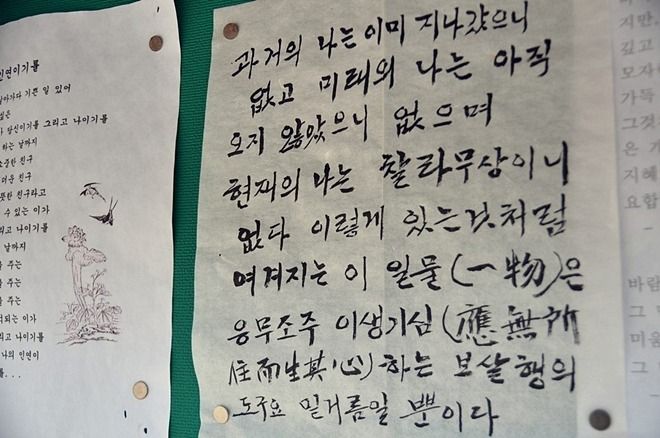 인연이기를
기쁜 일 있어
당신이기를 그리고 나이기를
하는 날까지
소중한 친구
친구라고
수 있는 이가
그리고 나이기를
날까지
주는
주는
주는
되는 이가
그리고 나이기를
나의 인연이
를...
과거의 나는 이미 지나갔으니
없고 미래의 나는 아직
오지 않았으니 없으며
현재의 나는 찰라무상이니
없다 이렇게 있는것처럼
여겨지는 이 일물(一物)은
응무조주 이생기심(應無所
住而生其心)하는 보살행의
도구요 밑거름일 뿐이다
지만,
깊고
모자
가득
그것
은 기
지혜
요합
-
바람
그
미움
그